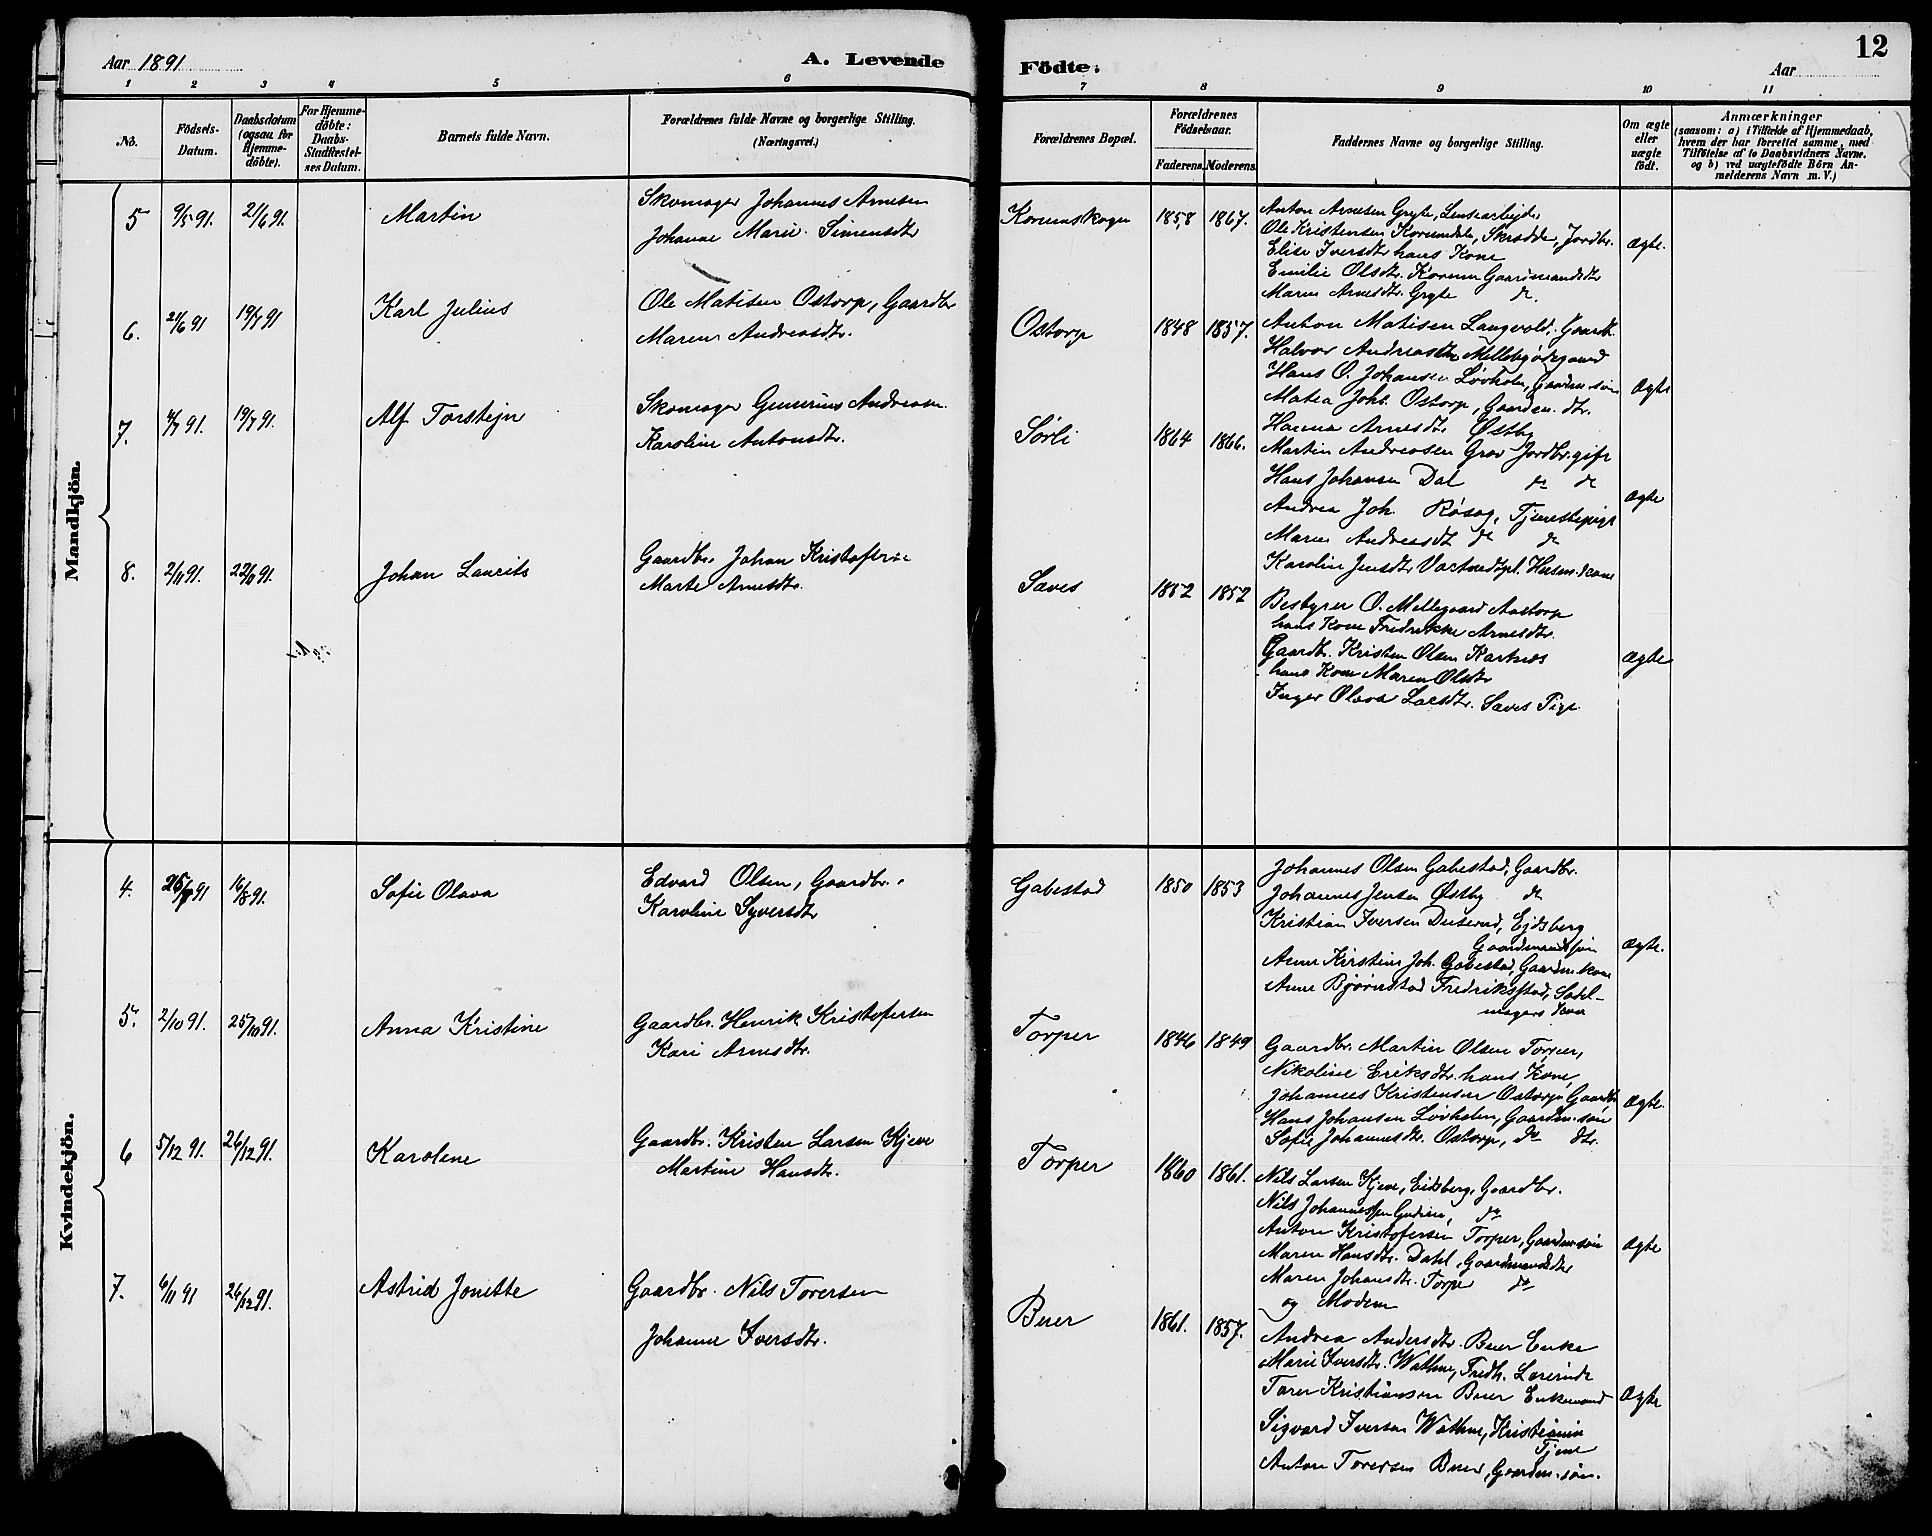 Aar 1891
A. Levende
Födte.
Aar
12
1 2 3 4 5 6 7 8 9 10 11
No.
Födsels-
Datum.
Daabsdatum
(ogsaa for
Hjemme-
döbte).
For Hjemme-
döbte:
Daabs-
Stadfæstel-
ses Datum.
Barnets fulde Navn.
Forældrenes fulde Navne og borgerlige Stilling.
(Næringsvei.)
Forældrenes Bopæl.
Forældrenes
Födselsaar.
Faderens. Moderens.
Faddernes Navne og borgerlige Stilling.
Om ægte
eller
uægte
födt.
Anmærkninger
(saasom: a) i Tilfælde af Hjemmedaab,
hvem der har forrettet samme, med
Tilföielse af to Daabsvidners Navne,
og b) ved uægtefödte Börn An-
melderens Navn m. V.)
Mandkjön.
5 9/5 91. 21/6 91. Martin
Skomager Johannes Arnesen
Johanne Marie Simensdtr
Korumskogen 1858 1867.
Anton Arnesen Gryte, Lensearbejder
Ole Kristensen Korumdalen, Skrædder, Jordbr.
Elise Iversdtr hans Kone
Emilie Olsdtr. Korum Gaardmandsdtr
Maren Arnesdtr. Gryte do.
Ægte.
6. 21/6 91 19/7 91 Karl Julius
Ole Matisen Ostorp, Gaardbr
Maren Andreasdtr.
Ostorp 1848 1857.
Anton Matisen Langvold, Gaardb.
Halvor Andreassen Mellebyødegaard
Hans O. Johansen Løvholen, Gaardm. søn
Matea Johs. Ostorp, Gaardm. dtr.
Hanna Arnesdtr Østby
Ægte
7. 4/7 91. 19/7 91. Alf Torstejn
Skomager Gunerius Andreasen.
Karoline Antonsdtr.
Sørli 1864 1866.
Martin Andreasen Grav Jordbr. gift
Hans Johansen Dal do do
Andrea Joh. Røsæg, Tjenestepige
Maren Andreasdt do do
Karolin Jensdtr Vartvedtpl. Husm. kone
Ægte
8. 2/11 91. 22/11 91. Johan Laurits
Gaardbr. Johan Kristofersen
Marte Arnesdtr.
Saves 1852 1852
Bestyrer O. Mellegaard Aastorp
hans Kone Fredrikke Arnesdtr.
Gaardbr. Kristen Olsen Kartnes
hans Kone Maren Olsdtr
Inger Olava Larsdtr. Saves Pige
Ægte
Kvindekjön.
4. 25/7 91 16/8 91. Sofie Olava
Edvard Olsen, Gaardbr.
Karoline Syversdtr
Gabestad 1850 1853
Johannes Olsen Gabestad, Gaardbr.
Johannes Jensen Østby do
Kristian Iversen Duserud, Ejdsberg
Gaardmandssøn
Anne Kristine Joh. Gabestad, Gaardm. kone
Anne Bjørnstad Fredriksstad, Sadel-
magers Kone
Ægte.
5. 2/10 91. 25/10 91. Anna Kristine
Gaardbr. Henrik Kristofersen
Kari Arnesdtr.
Torper 1846 1849
Gaardbr. Martin Olsen Torper,
Nikoline Eriksdtr. hans Kone,
Johannes Kristensen Ostorp Gaardbr
Hans Johansen Løvholen, Gaardm. søn
Sofie Johannesdtr. Ostorp, do dtr.
Ægte.
6 5/12 91. 26/12 91. Karolene
Gaardbr. Kristen Larsen Kjeve
Martine Hansdtr.
Torper 1860 1861.
Nils Larsen Kjeve, Eidsberg, Gaardbr.
Nils Johannessen Gudim, do
Anton Kristofersen Torper, Gaardm. søn
Maren Hansdtr. Dahl, Gaardmandsdtr
Maren Johansdtr. Torper do
og Modern
Ægte
7. 6/11 91 26/12 91. Astrid Jonette
Gaardbr. Nils Torersen
Johanne Iversdtr.
Buer 1861. 1857.
Andrea Andersdtr. Buer Enke
Marie Iversdtr. Wathne, Fredh. Lærerinde
Torer Kristiansen Buer Enkemand
Sigvard Iversen Wathne, Kristiania
Tjene
Anton Torersen Buer, Gaardm. søn.
Ægte